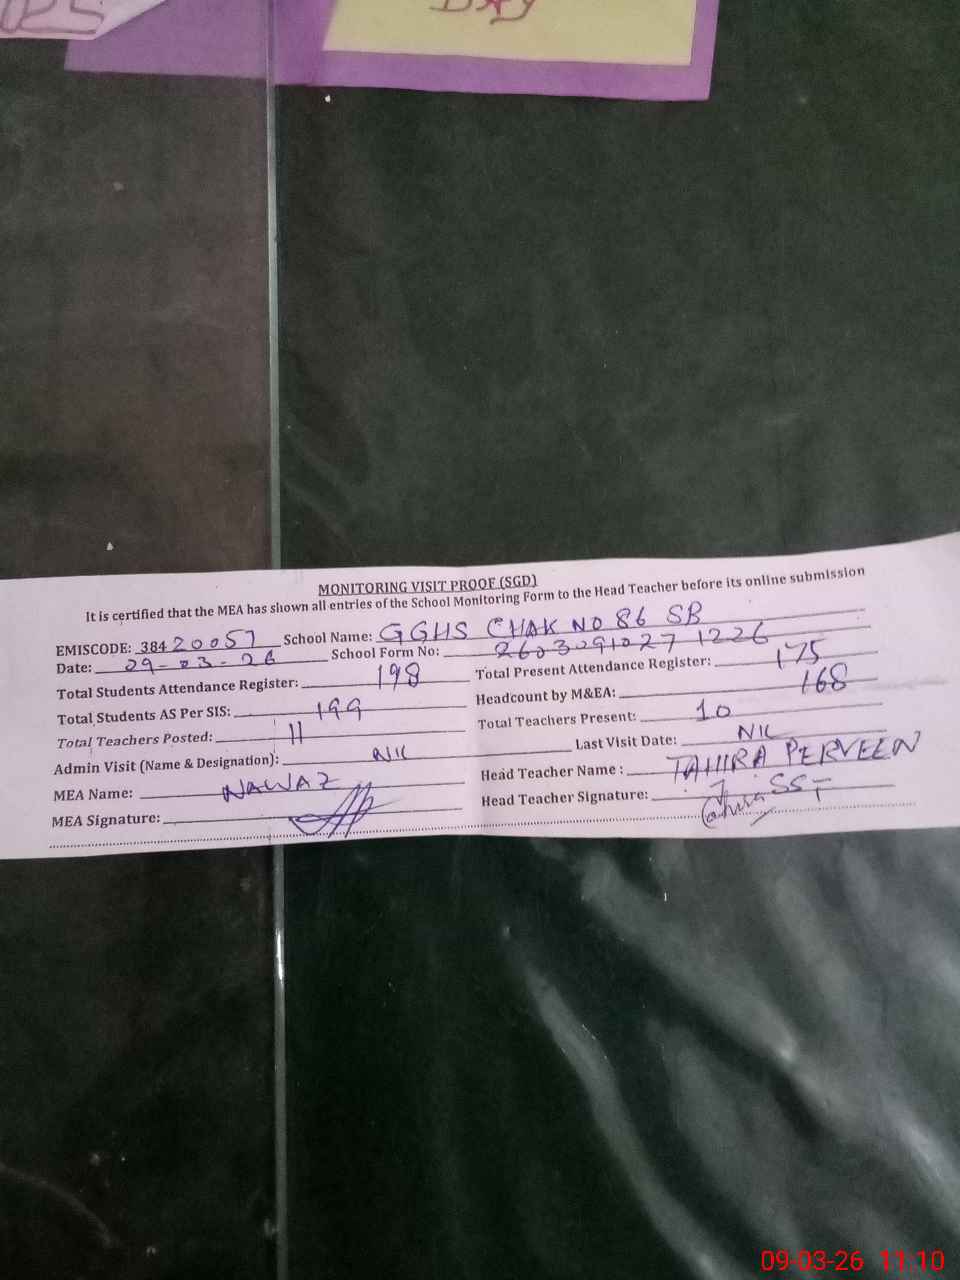 MONITORING VISIT PROOF (SGD)
It is certified that the MEA has shown all entries of the School Monitoring Form to the Head Teacher before its online submission
EMISCODE: 38420057 School Name: GGHS CHAK NO 86 SB
Date: 09-03-26 School Form No: 2603091027 1226
Total Students Attendance Register: 198 Total Present Attendance Register: 175
Total Students AS Per SIS: 199 Headcount by M&EA: 168
Total Teachers Posted: 11 Total Teachers Present: 10
Admin Visit (Name & Designation): NIL Last Visit Date: NIL
MEA Name: NAWAZ Head Teacher Name : TAHIRA PERVEEN
MEA Signature: Head Teacher Signature: SST
09-03-26 11:10